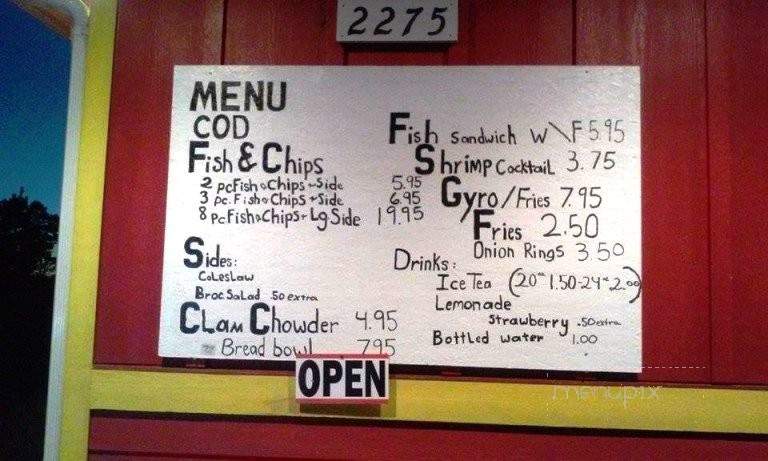 2275
MENU
COD
Fish & Chips
2 pc Fish & Chips + Side 5.95
3 pc. Fish & Chips + Side 6.95
8 pc Fish & Chips + Lg Side 19.95
Sides:
Coleslaw
Broc Salad .50 extra
Clam Chowder 4.95
Bread bowl 7.95
Fish Sandwich W\F 5.95
Shrimp Cocktail 3.75
Gyro/Fries 7.95
Fries 2.50
Onion Rings 3.50
Drinks:
Ice Tea (20" 1.50-24" 2.00)
Lemonade
Strawberry .50 extra
Bottled water 1.00
OPEN
menupix